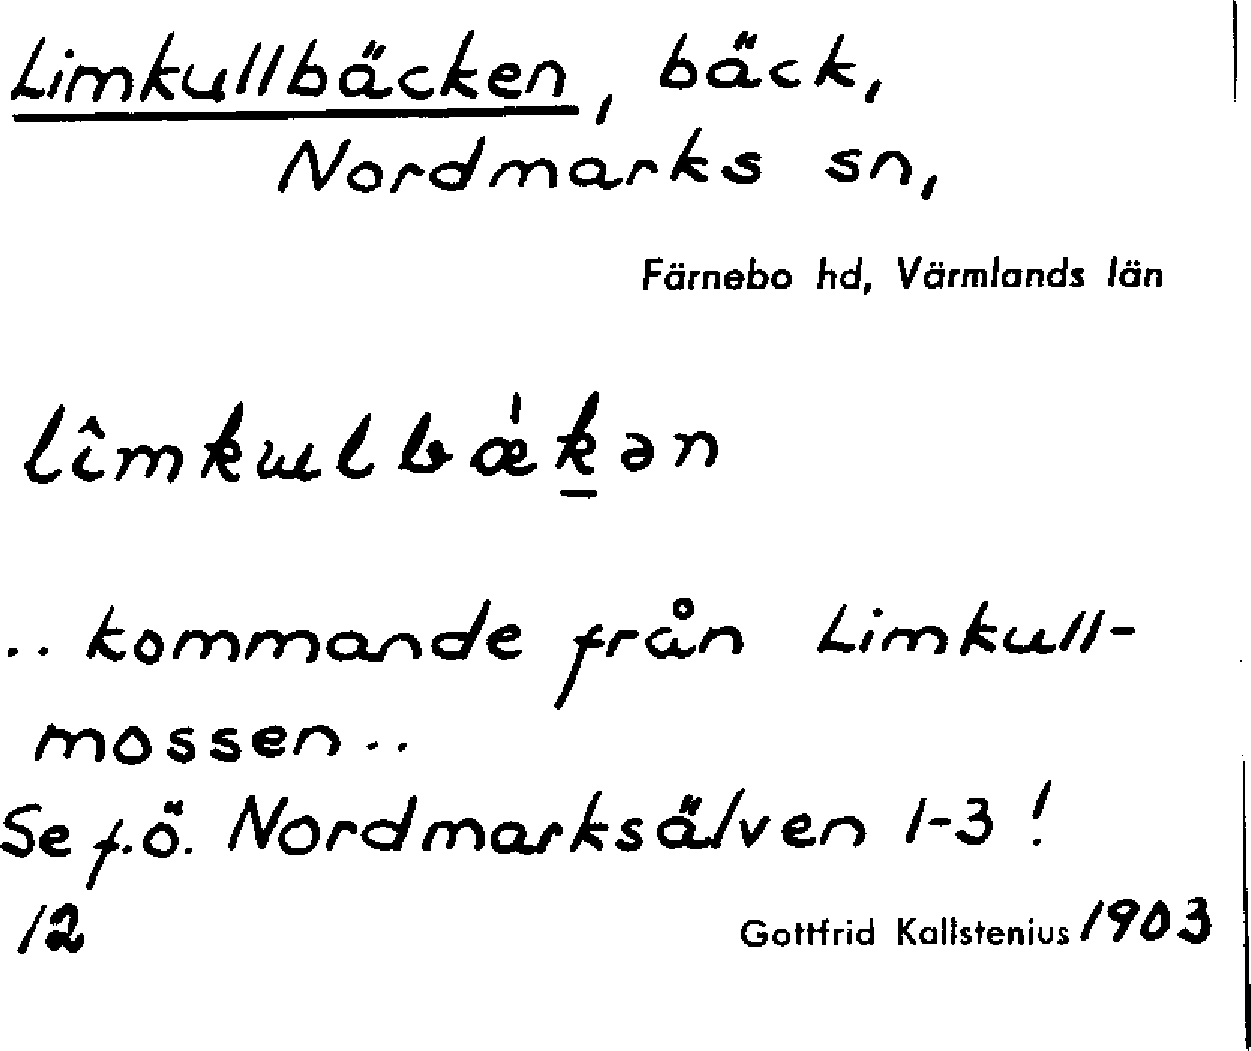 Limkullbäcken, bäck,
Nordmarks sn,
Färnebo hd, Värmlands län
lîmkɯlbǽk̠ən
.. kommande från Limkull-
mossen..
Se f.ö. Nordmarksälven 1-3!
12
Gottfrid Kallstenius 1903